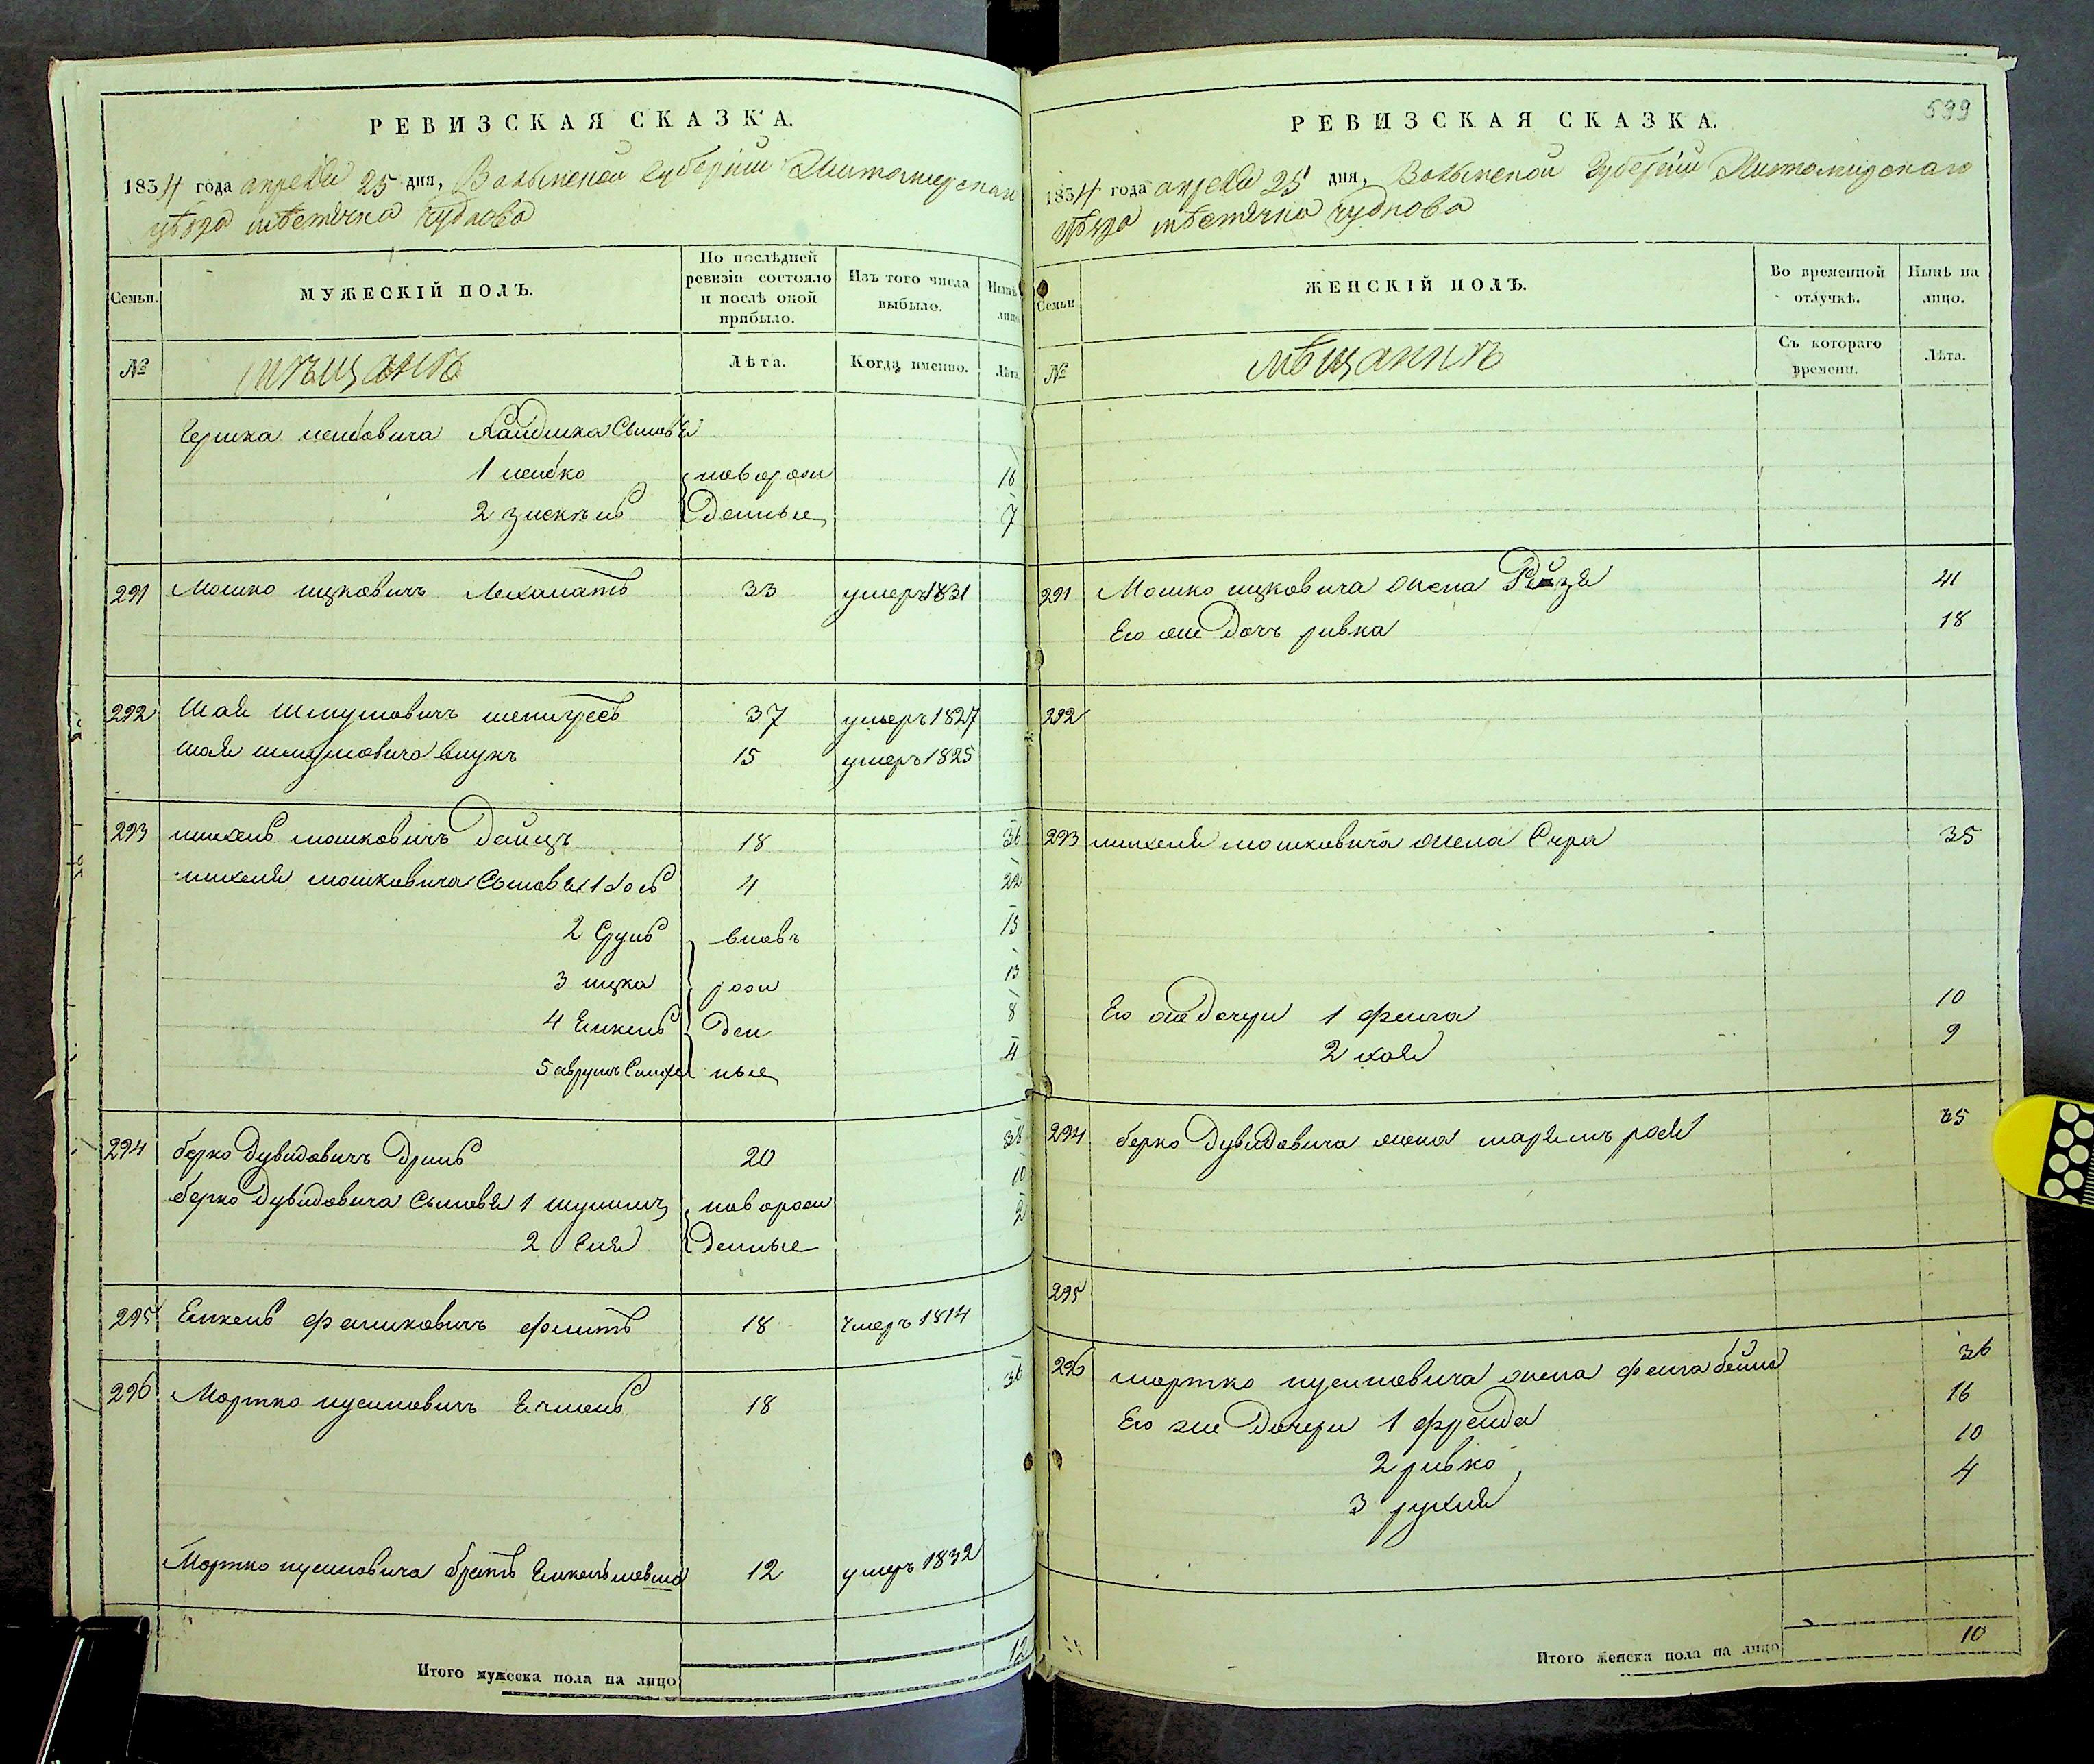 РЕВИЗСКАЯ СКАЗКА.
1834 года апреля 25 дня, Волынской Губернии Житомирскаго
уѣзда мѣстечка Чуднова
Семьи.
МУЖЕСКІЙ ПОЛЪ.
По послѣдней ревизіи состояло и послѣ оной прибыло.
Изъ того числа выбыло.
Нынѣ на лицо.
№
мѣщанъ
Лѣта.
Когда именно.
Лѣта.
Гершка лейбовича сыновья
1 лейбко новорож 16
2 денные 7
291 Мошко ицковичъ 33 умеръ 1831
292 Шая Шмулёвичъ 37 умеръ 1827
шая шмулёвича внукъ 15 умеръ 1825
293 михель мошковичъ Дейчъ 18 36
михеля мошковича сыновья 1 4 22
2 Сруль вновь 15
3 ицка рож 13
4 Енкель ден 8
5 аврумъ ные 4
294 берко Дувидовичъ 20 38
берко Дувидовича сыновья 1 новорож 10
2 денные 2
295 Енкель 18 умеръ 1814
296 Мортко нусиновичъ 18 36
Мортко нусиновича братъ Енкель 12 умеръ 1832
Итого мужеска пола на лицо 12
599
РЕВИЗСКАЯ СКАЗКА.
1834 года апреля 25 дня, Волынской Губернии Житомирскаго
уѣзда мѣстечка Чуднова
Семьи
ЖЕНСКІЙ ПОЛЪ.
Во временной отлучкѣ.
Нынѣ на лицо.
№
мѣщанъ
Съ котораго времени.
Лѣта.
291 Мошко ицковича жена Рейзя 41
Его же дочь ривка 18
292
293 михеля мошковича жена Сура 35
Его же дочери 1 фейга 10
2 хая 9
294 берко Дувидовича жена марямъ рося 35
295
296 мортко нусиновича жена фейга бейла 36
Его же дочери 1 фрейда 16
2 ривка 10
3 рухля 4
Итого женска пола на лицо 10